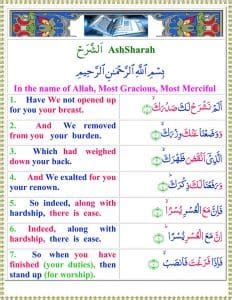 اَلشَّرْحُ AshSharah
بِسْمِ اللَّهِ الرَّحْمَٰنِ الرَّحِيمِ
In the name of Allah, Most Gracious, Most Merciful
1. Have We not opened up
for you your breast.
أَلَمْ نَشْرَحْ لَكَ صَدْرَكَ
2. And We removed
from you your burden.
وَوَضَعْنَا عَنْكَ وِزْرَكَ
3. Which had weighed
down your back.
الَّذِي أَنْقَضَ ظَهْرَكَ
4. And We exalted for you
your renown.
وَرَفَعْنَا لَكَ ذِكْرَكَ
5. So indeed, along with
hardship, there is ease.
فَإِنَّ مَعَ الْعُسْرِ يُسْرًا
6. Indeed, along with
hardship, there is ease.
إِنَّ مَعَ الْعُسْرِ يُسْرًا
7. So when you have
finished (your duties), then
stand up (for worship).
فَإِذَا فَرَغْتَ فَانْصَبْ